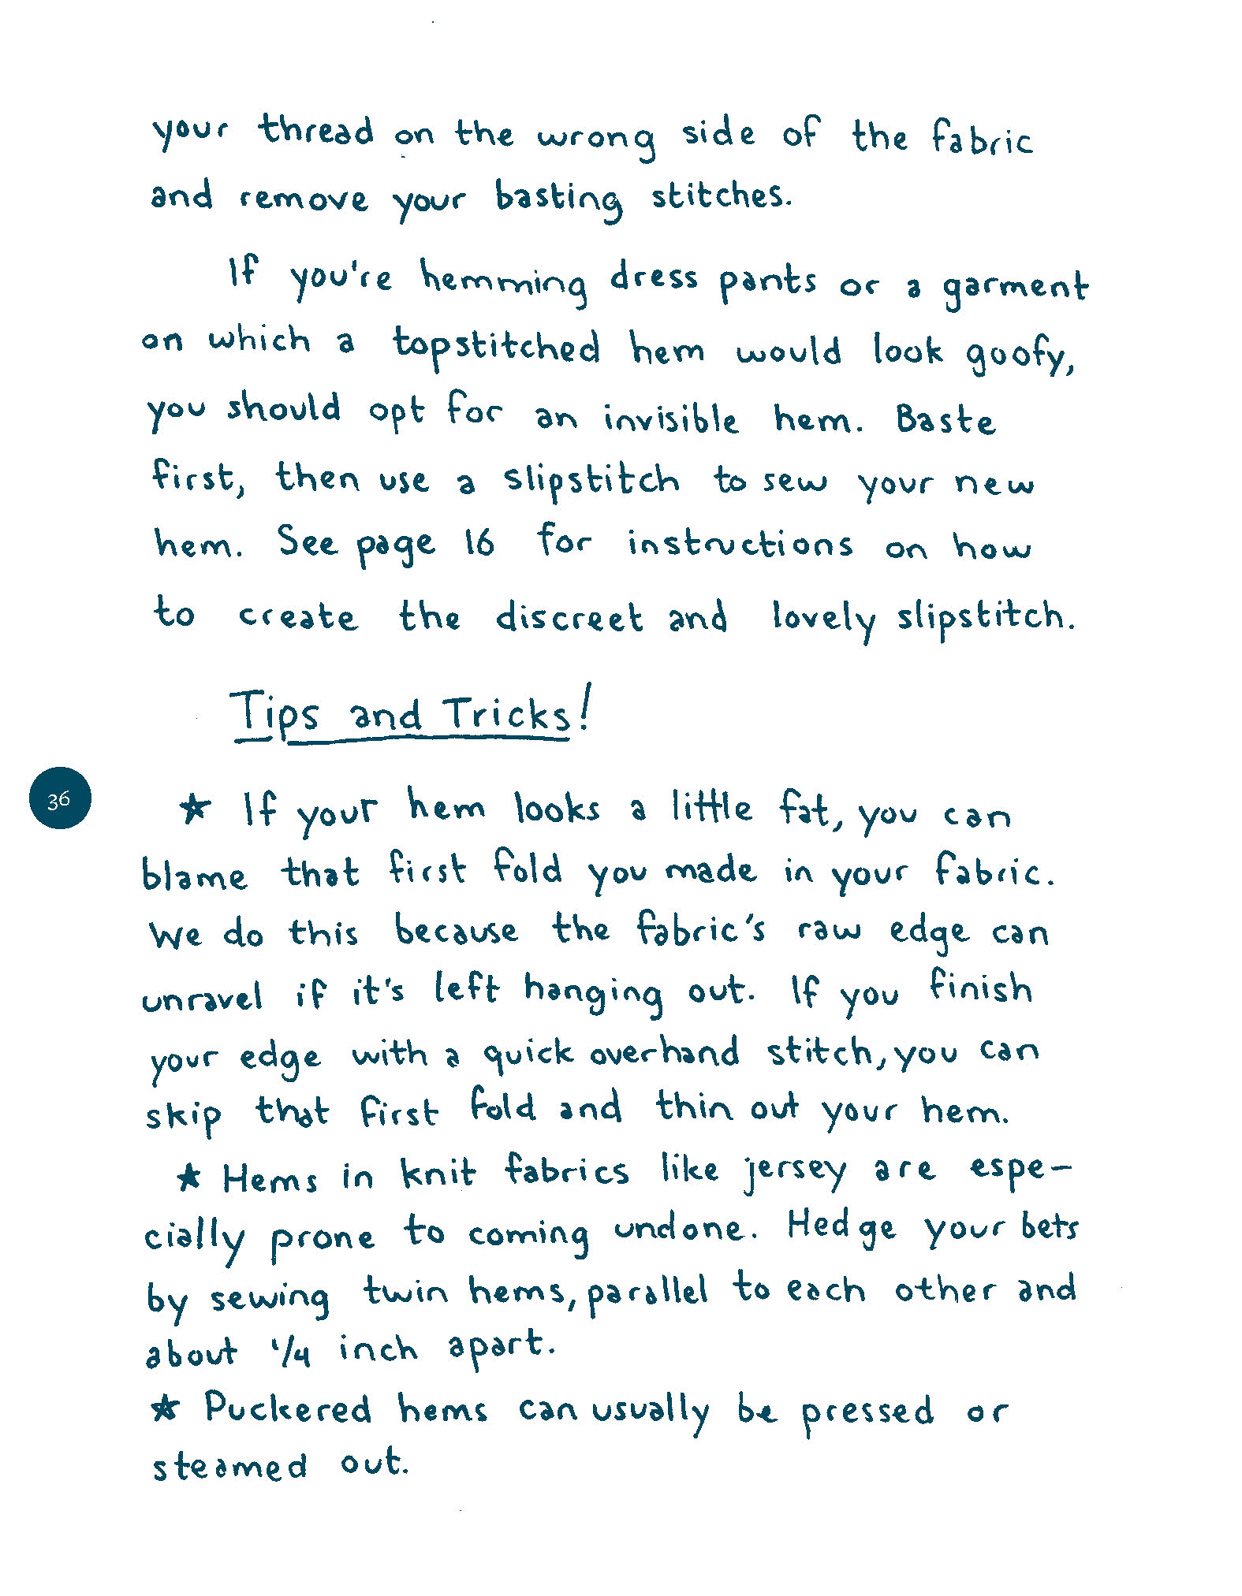 your thread on the wrong side of the fabric
and remove your basting stitches.
If you're hemming dress pants or a garment
on which a topstitched hem would look goofy,
you should opt for an invisible hem. Baste
first, then use a slipstitch to sew your new
hem. See page 16 for instructions on how
to create the discreet and lovely slipstitch.
Tips and Tricks!
36
★ If your hem looks a little fat, you can
blame that first fold you made in your fabric.
We do this because the fabric's raw edge can
unravel if it's left hanging out. If you finish
your edge with a quick overhand stitch, you can
skip that first fold and thin out your hem.
★ Hems in knit fabrics like jersey are espe-
cially prone to coming undone. Hedge your bets
by sewing twin hems, parallel to each other and
about 1/4 inch apart.
★ Puckered hems can usually be pressed or
steamed out.